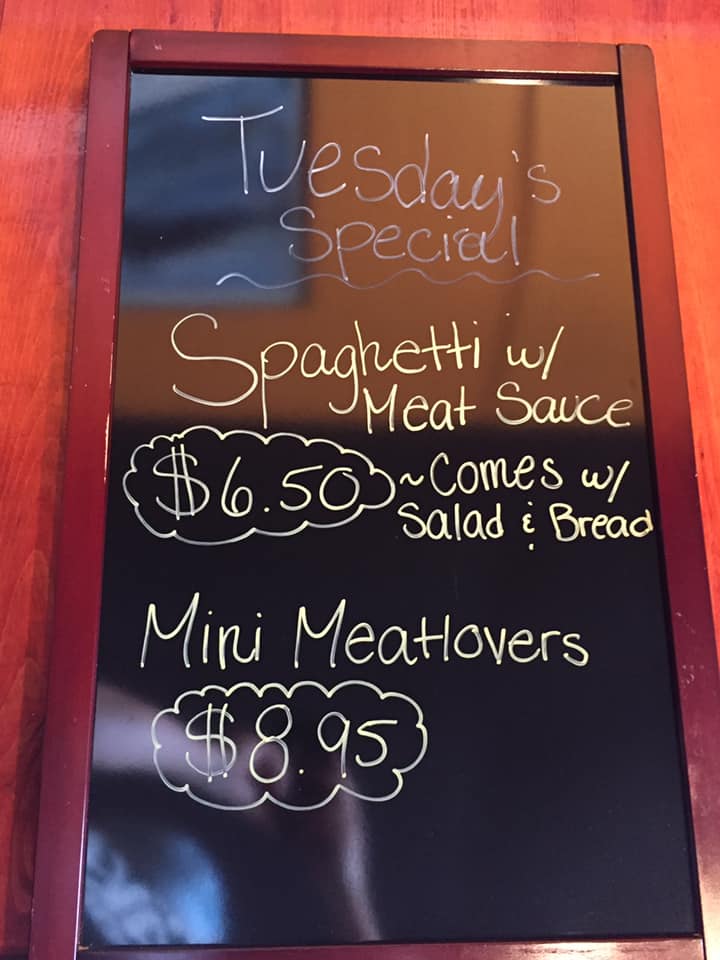 Tuesday's
Special
Spaghetti w/
Meat Sauce
$6.50 ~Comes w/
Salad & Bread
Mini Meatlovers
$8.95